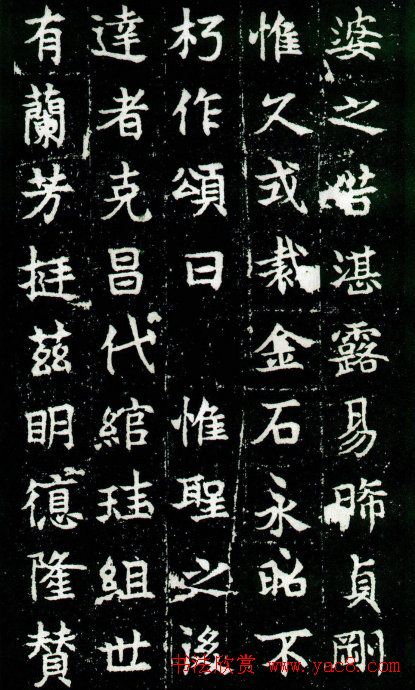 婆之湛露易晞貞剛
惟久或裁金石永昭不
朽作頌曰 惟聖之後
達者克昌代綰珪組世
有蘭芳挺茲明德隆賛
书法欣赏 www.yac8.com